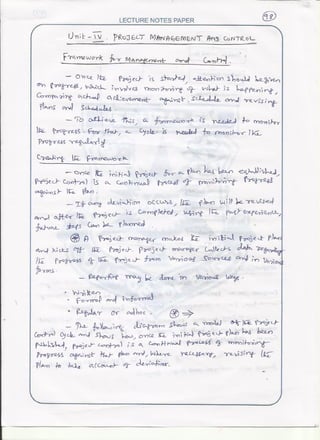 LECTURE NOTES PAPER
98
Unit - IV . PROJECT MANAGEMENT AND CONTROL
Framework for Management and Control.
- Once the Project is started, attention should be given
on Progress, which involves monitoring of what is happening,
Comparing actual achievement against Schedule and revising
Plans and Schedules
- To achieve this, a framework is needed to monitor
the Progress. For that, a Cycle is needed to monitor the
Progress regularly.
Creating the Framework
- Once the initial Project for a Plan has been established,
Project Control is a Continual Process of monitoring Progress
against the Plan.
- If any deviation occurs, the Plan will be revised
and after the Project is Completed, using the past experience,
future steps Can be Planned
A Project manager makes the initial Project Plan
and kicks off the Project. Project manager Collects data regarding
the Progress of the Project from Various Sources and in Various
forms.
- Reporting may be done in Various ways.
• Written
• Formal and Informal
• Regular or adhoc.
- The following diagram Shows a model of the Project
Control Cycle and Shows how, once the initial Project plan has been
Published, Project Control is a Continual process of monitoring
Progress against that plan and, where necessary, revising the
Plan to take account of deviation.